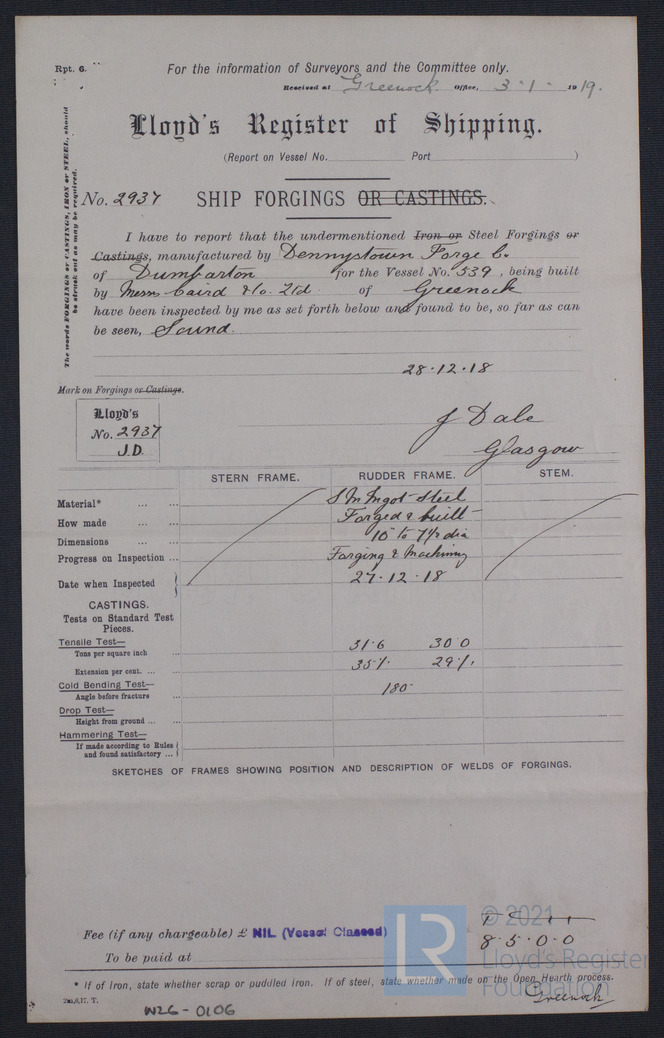 Rpt. 6.
For the information of Surveyors and the Committee only.
Received at Greenock Office, 3 · 1 · 1919.
Lloyd's Register of Shipping.
(Report on Vessel No. Port )
The words FORGINGS or CASTINGS, IRON or STEEL, should
be struck out as may be required.
No. 2937 SHIP FORGINGS OR CASTINGS.
I have to report that the undermentioned Iron or Steel Forgings or
Castings, manufactured by Dennystown Forge Co
of Dumbarton for the Vessel No. 539, being built
by Messrs Caird & Co. Ltd. of Greenock
have been inspected by me as set forth below and found to be, so far as can
be seen, Sound.
28·12·18
Mark on Forgings or Castings.
Lloyd's
No. 2937
J.D.
J Dale
Glasgow
STERN FRAME. RUDDER FRAME. STEM.
Material* ... ... S M Ingot Steel
How made ... ... Forged & built
Dimensions ... ... 10" to 7 1/2 dia
Progress on Inspection ... Forging & Machining
Date when Inspected 27·12·18
CASTINGS.
Tests on Standard Test
Pieces.
Tensile Test—
Tons per square inch 31·6 30·0
Extension per cent. ... ... 35% 29%
Cold Bending Test—
Angle before fracture ... 180°
Drop Test—
Height from ground ... ...
Hammering Test—
If made according to Rules
and found satisfactory ...
SKETCHES OF FRAMES SHOWING POSITION AND DESCRIPTION OF WELDS OF FORGINGS.
Fee (if any chargeable) £ NIL (Vessel Classed)
8·5·0·0
To be paid at
© 2021
Lloyd's Register
Foundation
LR
* If of Iron, state whether scrap or puddled iron. If of steel, state whether made on the Open Hearth process.
Greenock
2m,6,17. T.
W26-0106